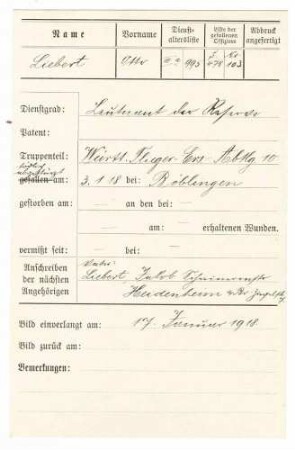 Name Vorname Dienst-altersliste Liste der gefallenen Offiziere Abdruck angefertigt
Liebert Otto 995 I. 078 Nr. 103
Dienstgrad: Leutnant der Reserve
Patent:
Truppenteil: Württ. Flieger Ers. Abtlg 10
tödlich abgestürzt
gefallen am: 3. 1. 18 bei Böblingen
gestorben am: — an den bei: —
— am — erhaltenen Wunden.
vermißt seit: — bei: —
Anschreiben Vater:
der nächsten Liebert, Jakob
Angehörigen Heidenheim
Bild einverlangt am: 17. Januar 1918
Bild zurück am:
Bemerkungen: